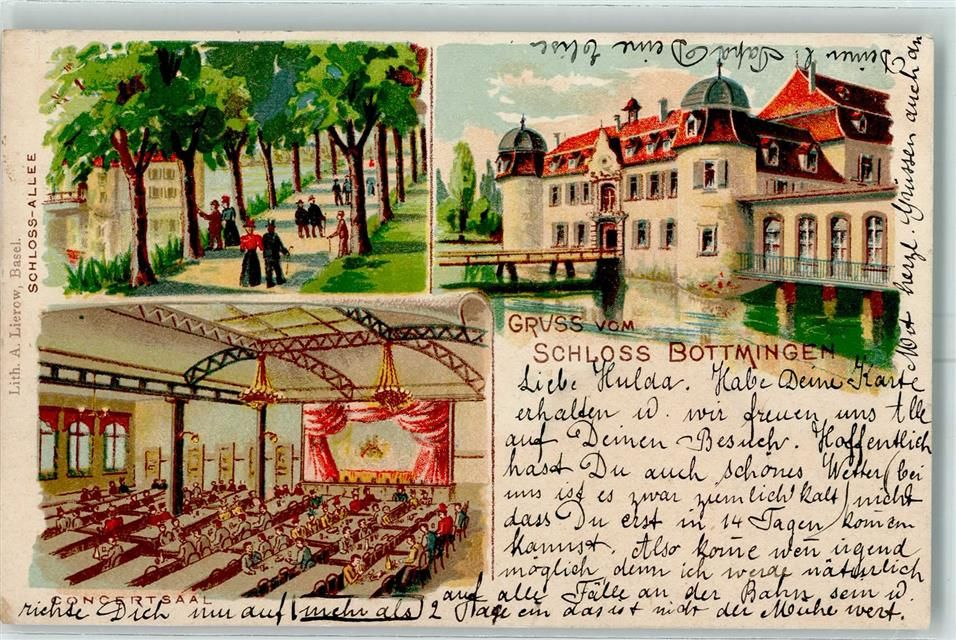 SCHLOSS-ALLEE
Lith. A. Lierow, Basel.
GRUSS VOM
SCHLOSS BOTTMINGEN
CONCERTSAAL
Liebe Hulda. Habe Deine Karte
erhalten u. wir freuen uns Alle
auf Deinen Besuch. Hoffentlich
hast Du auch schönes Wetter (bei
uns ist es zwar ziemlich kalt) nicht
dass Du erst in 14 Tagen komen
kannst. Also kome wen irgend
möglich denn ich werde natürlich
auf alle Fälle an der Bahn sein u.
richte Dich nur auf (mehr als) 2 Tage ein das ist nicht der Mühe wert.
Mit herzl. Grüssen auch an
Deinen l. Papa Deine Elise.